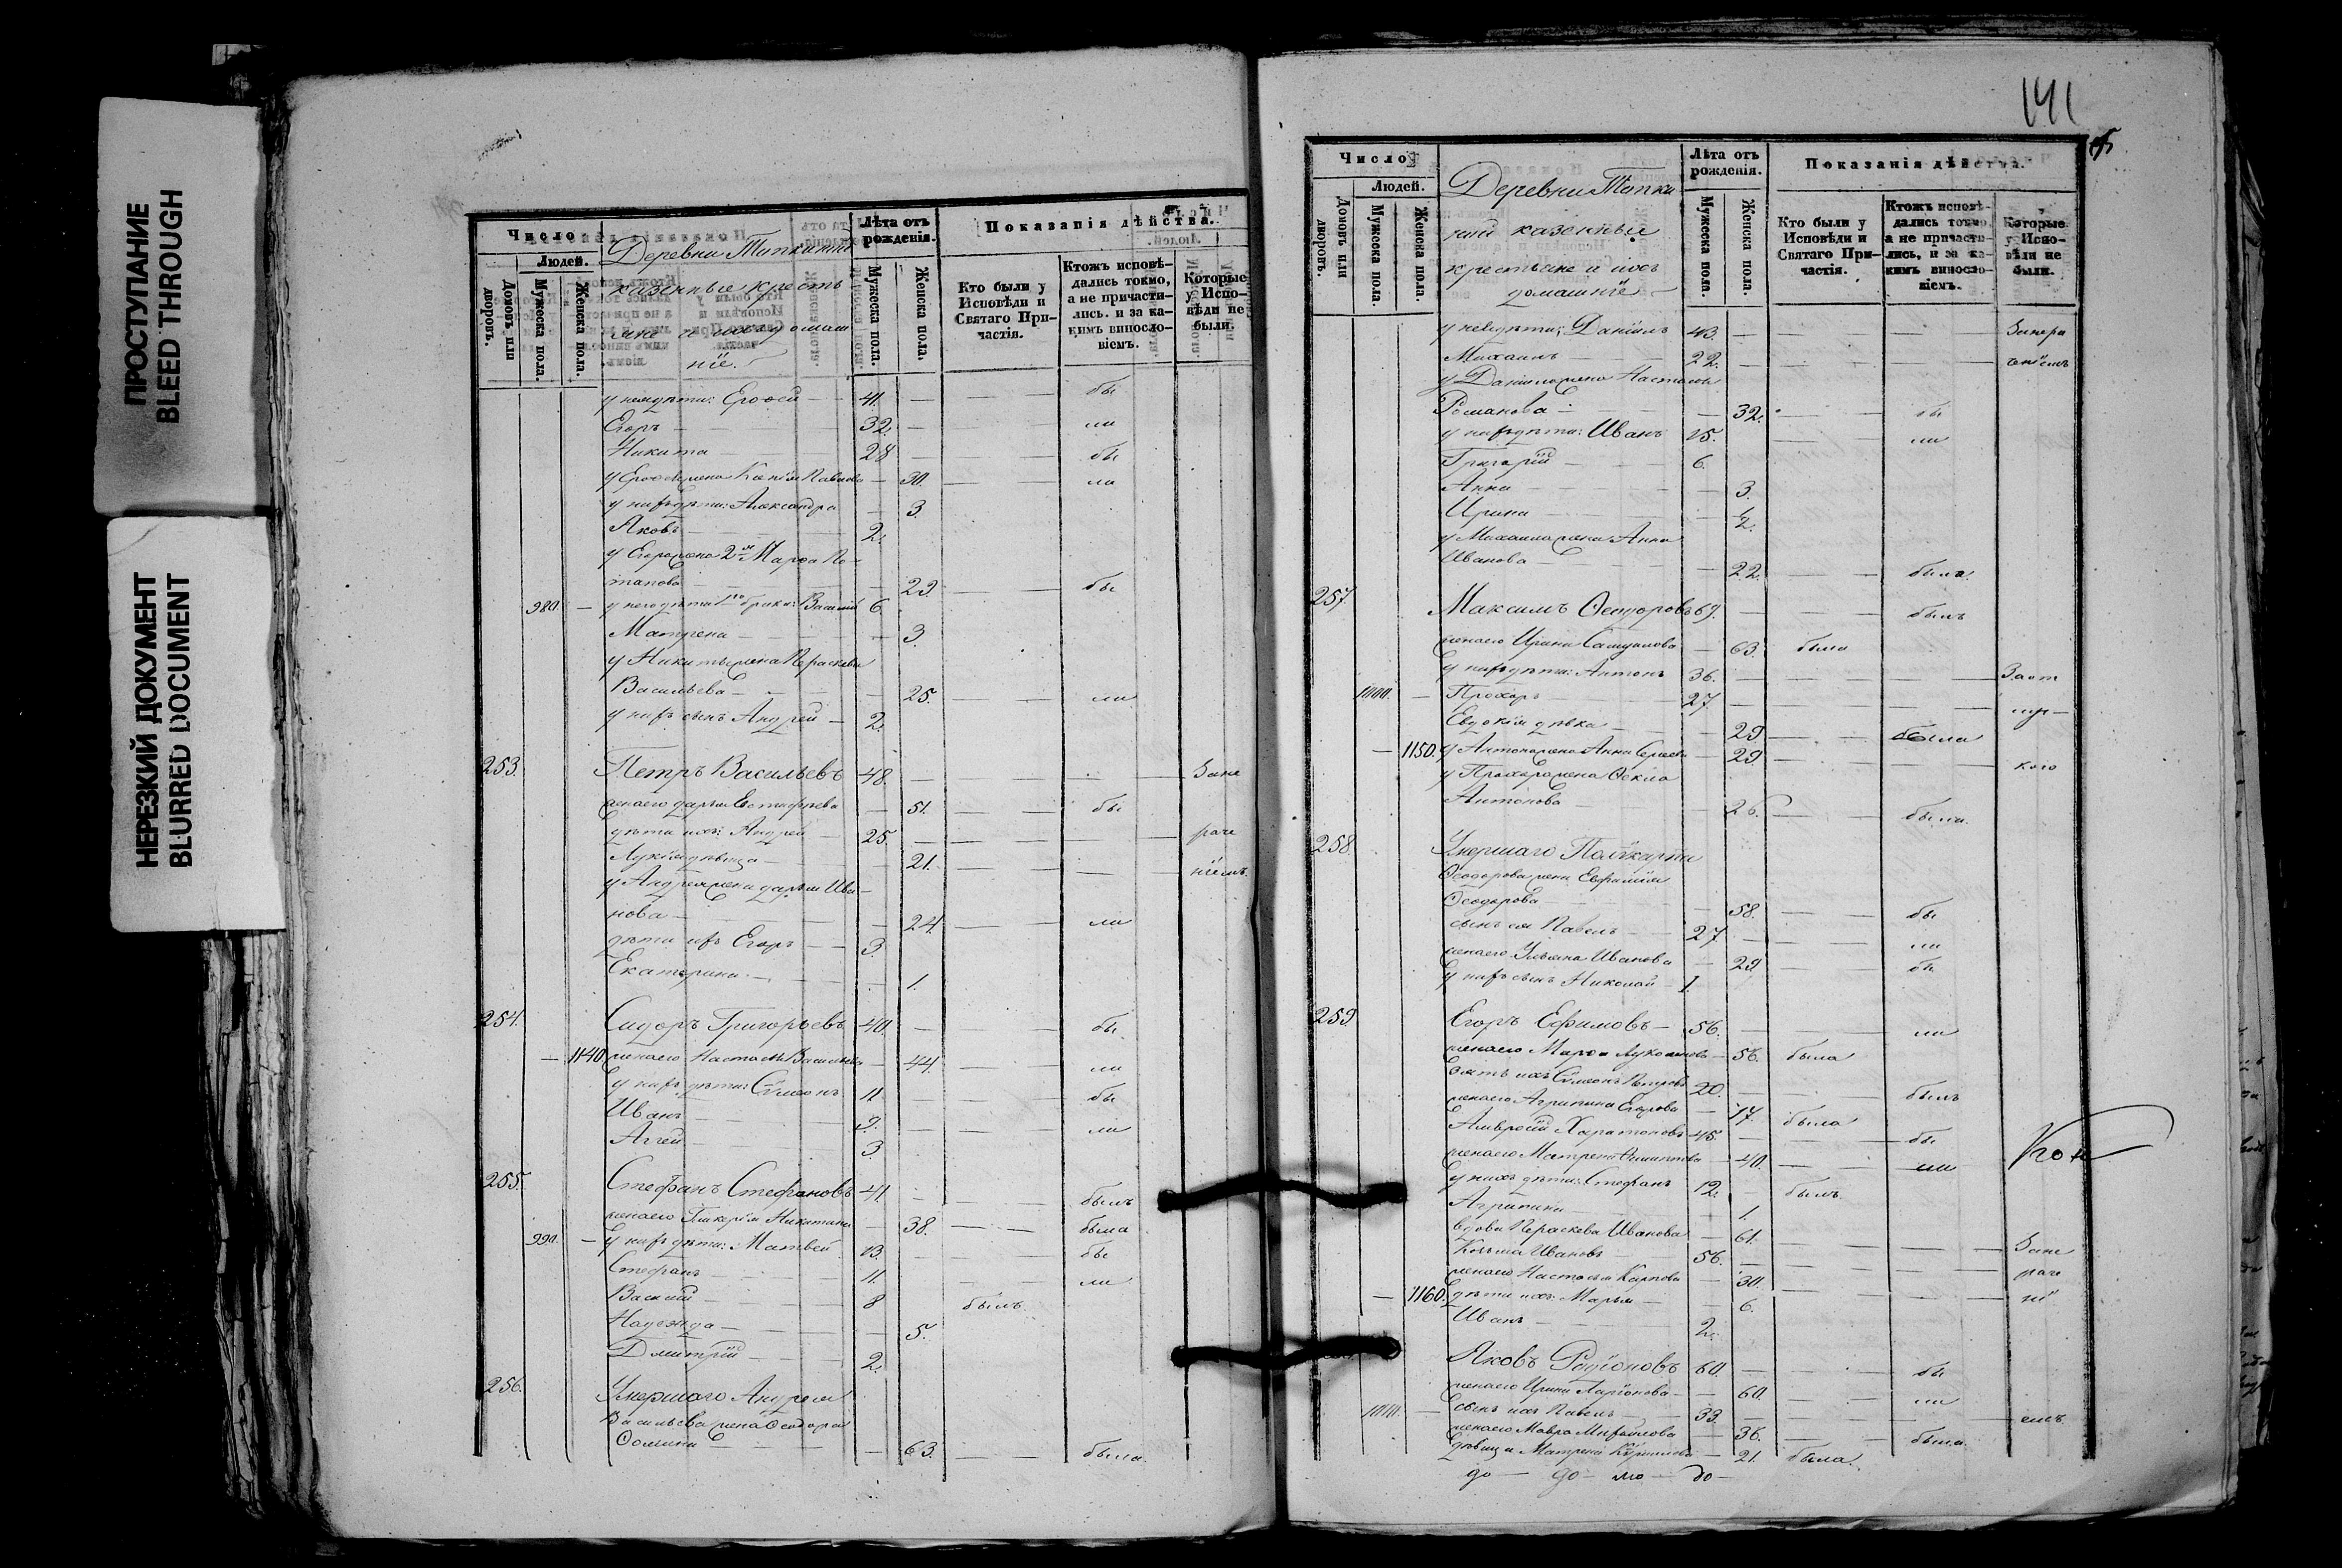 ПРОСТУПАНИЕ
BLEED THROUGH
НЕРЕЗКИЙ ДОКУМЕНТ
BLURRED DOCUMENT
Число
Людей.
Домовъ или дворовъ.
Мужеска пола.
Женска пола.
Деревни
казенные кресть
яне и ихъ домаш
ніе.
Лѣта отъ рожденія.
Мужеска пола.
Женска пола.
Показанія дѣйства.
Кто были у Исповѣди и Святаго Причастія.
Ктожъ исповѣдались токмо, а не причастились. и за какимъ винословіемъ.
Которые у Исповѣди не были.
у него дѣти: Ерофей 41. бы
Егоръ 32. ли
Никита 28 бы
у Ерофея жена Павлова 30. ли
у нихъ дѣти: Александра 3.
Яковъ 2.
у Егора жена 2 Марѳа По
тапова 29. бы
980. у него дѣти 1 брака: Василий 6.
Матрена 3.
у Никиты жена Параскева
Васильева 25. ли
у нихъ сынъ Андрей 2.
253. Петръ Васильевъ 48. Зане
жена его Дарья Евстифѣева 51. бы
дѣти ихъ: Андрей 25. раче
девица 21. ніемъ
у Андрея жена Дарья Ива
нова 24. ли
дѣти ихъ Егоръ 3.
Екатерина 1.
254. Сидоръ Григорьевъ 40. бы
1140. жена его Настасья Васильева 44. ли
у нихъ дѣти: Сѵмеонъ 11. бы
Иванъ 9. ли
Аггей 3.
255. Стефанъ Стефановъ 41. былъ
жена его Гликерія Никитина 38. была
990. у нихъ дѣти: Матвей 13. бы
Стефанъ 11. ли
Василий 8 былъ.
Надежда 5.
Дмитрій 2.
256. Умершаго Андрея
Васильева жена Ѳеодора
Ѳомина 63. была.
141
Число
Людей.
Домовъ или дворовъ.
Мужеска пола.
Женска пола.
Деревни
казенные
крестьяне и ихъ
домашніе
Лѣта отъ рожденія.
Мужеска пола.
Женска пола.
Показанія дѣйства.
Кто были у Исповѣди и Святаго Причастія.
Ктожъ исповѣдались токмо, а не причастились, и за какимъ винословіемъ.
Которые у Исповѣди не были.
у нея дѣти: Даніилъ 43. Занера
Михаилъ 22. ченіемъ
у Даніила жена Настасья
Романова 32. бы
у нихъ дѣти: Иванъ 15. ли
Григорій 6.
Анна 3.
Ирина ½.
у Михаила жена Анна
Иванова 22. была.
257. Максимъ Ѳеодоровъ 69. былъ
жена его Ирина Самуилова 63. была
у нихъ дѣти: Антонъ 36. Заот
1000. Прохоръ 27. луч
Евдокія дѣвка 29. была
1150. у Антона жена Анна 29. кого
у Прохора жена Ѳекла
Антонова 26. была.
258. Умершаго Поликарпа
Ѳеодорова жена Евфимія
Ѳеодорова 58. бы
сынъ ея Павелъ 27. ли
жена его Ульяна Иванова 29 бы
у нихъ сынъ Николай 1.
259. Егоръ Ефимовъ 56. ли
жена его Марѳа 56. была
зять ихъ Сѵмеонъ Петровъ 20. былъ
жена его Агрипина Егорова 17. была
Амвросій Харитоновъ 45. бы
жена его Матрена 40. ли
у нихъ дѣти: Стефанъ 12. былъ
Агрипина 1.
вдова Параскева Иванова 61. Зане
Козьма Ивановъ 56. раче
жена его Настасья Карпова 30. ні
1160. дѣти ихъ: Марья 6.
Иванъ 2.
Яковъ Родіоновъ 60. бы
жена его Ирина Ларіонова 60. ли
1010. сынъ ихъ Павелъ 33. емъ
жена его Мавра Михайлова 36. была.
девица Матрена Кириллова 21. была.